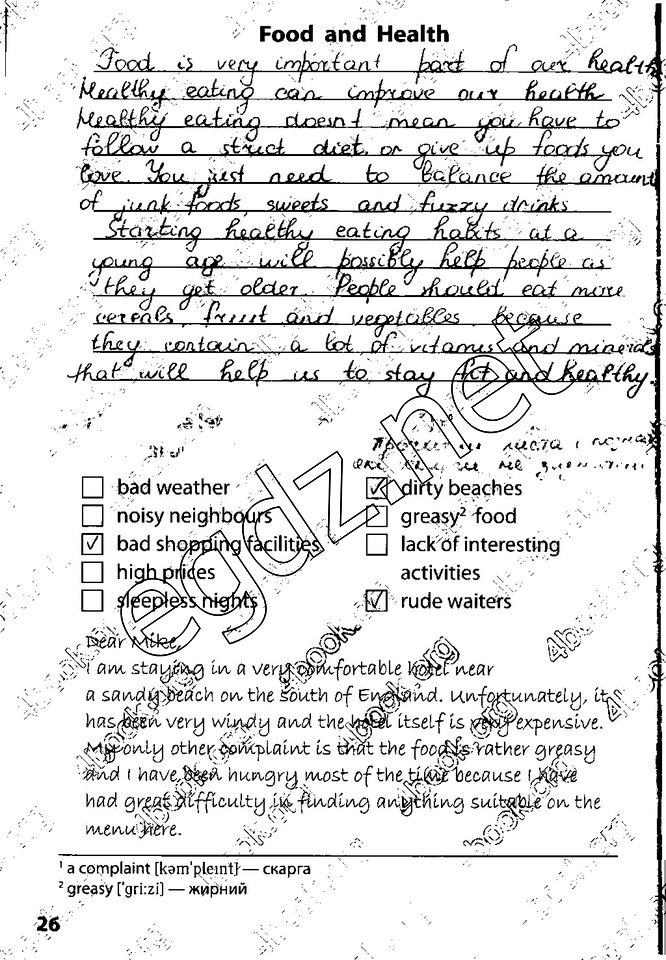 Food and Health
Food is very important part of our health
Healthy eating can improve our health
Healthy eating doesn't mean you have to
follow a strict diet or give up foods you
love. You just need to balance the amount
of junk foods, sweets and fuzzy drinks
Starting healthy eating habits at a
young age will possibly help people as
they get older. People should eat more
cereals, fruit and vegetables because
they contain a lot of vitamins and minerals
that will help us to stay fit and healthy.
листа і
не
bad weather
noisy neighbours
✓ bad shopping facilities
high prices
sleepless nights
✓ dirty beaches
greasy² food
lack of interesting
activities
✓ rude waiters
Dear Mike,
I am staying in a very comfortable hotel near
a sandy beach on the south of England. Unfortunately, it
has been very windy and the hotel itself is very expensive.
My only other complaint is that the food is rather greasy
and I have been hungry most of the time because I have
had great difficulty in finding anything suitable on the
menu here.
¹ a complaint [kəmˈpleɪnt] — скарга
² greasy [ˈgriːzi] — жирний
26
egdz.net
4book.org